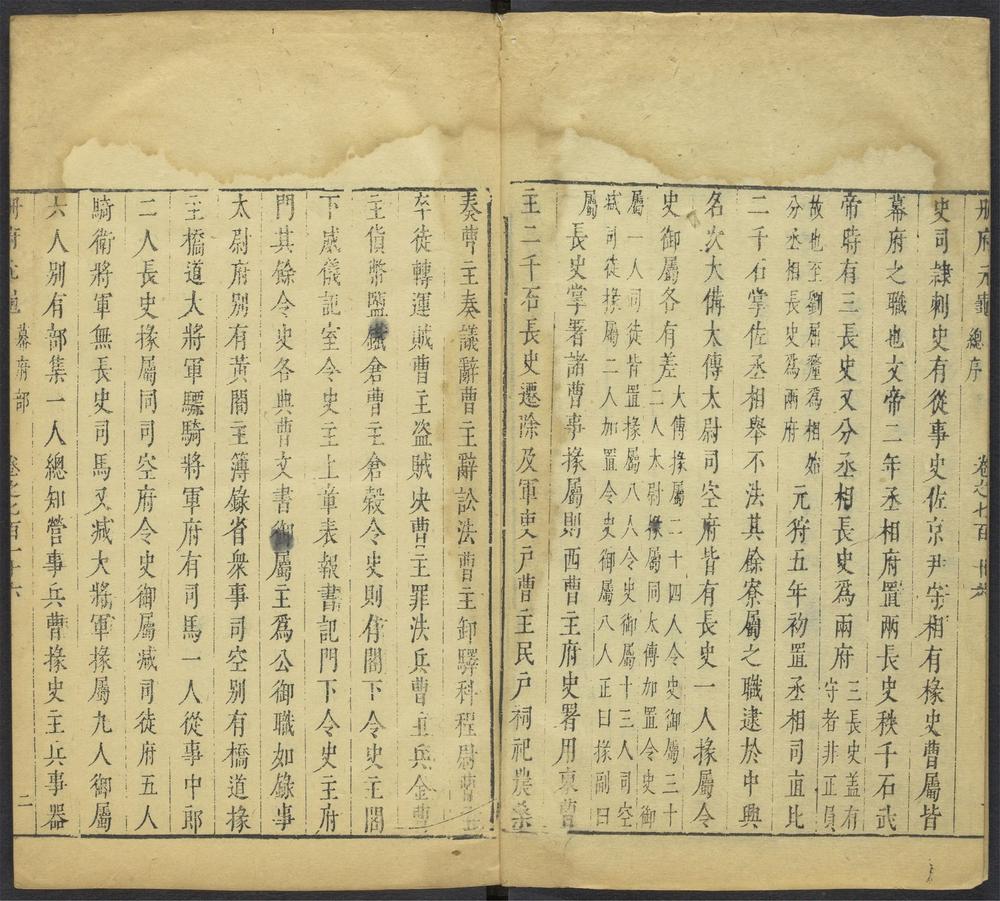 冊府元龜 總序 卷之七百一十六
史司隷刺史有從事史佐京尹守相有椽史曹屬皆
幕府之職也文帝二年丞相府置兩長史秩千石武
帝時有三長史又分丞相長史爲兩府 三長史蓋有
守者非正員
故也至劉屈氂爲相始
分丞相長史爲兩府 元狩五年初置丞相司直比
二千石掌佐丞相舉不法其餘寮屬之職逮於中興
名次大備太傅太尉司空府皆有長史一人掾屬令
史御屬各有差 大傳掾屬二十四人令史御屬三十
二人太尉掾屬同太傅加置令史御
屬一人司徒皆置掾屬八人令史御屬十三人司空
減司徒掾屬二人加置令史御屬八人正曰掾副曰
屬
長史掌署諸曹事掾屬則西曹主府史署用東曹
主二千石長史遷除及軍吏戶曹主民戶祠祀農桑
奏曹主奏議辭曹主辭訟法曹主卸驛科程尉曹主
卒徒轉運賊曹主盗賊决曹主罪法兵曹主兵金曹
主貨幣鹽鐵倉曹主倉穀令史則有閤下令史主閤
下威儀記室令史主上章表報書記門下令史主府
門其餘令史各典曹文書御屬主爲公御職如錄事
太尉府別有黃閤主簿錄省衆事司空別有橋道掾
主橋道大將軍驃騎將軍府有司馬一人從事中郎
二人長史掾屬同司空府令史御屬減司徒府五人
騎衛將軍無長史司馬又減大將軍掾屬九人御屬
六人別有部集一人總知營事兵曹掾史主兵事器
冊府元龜 幕府部 卷之七百一十六 二